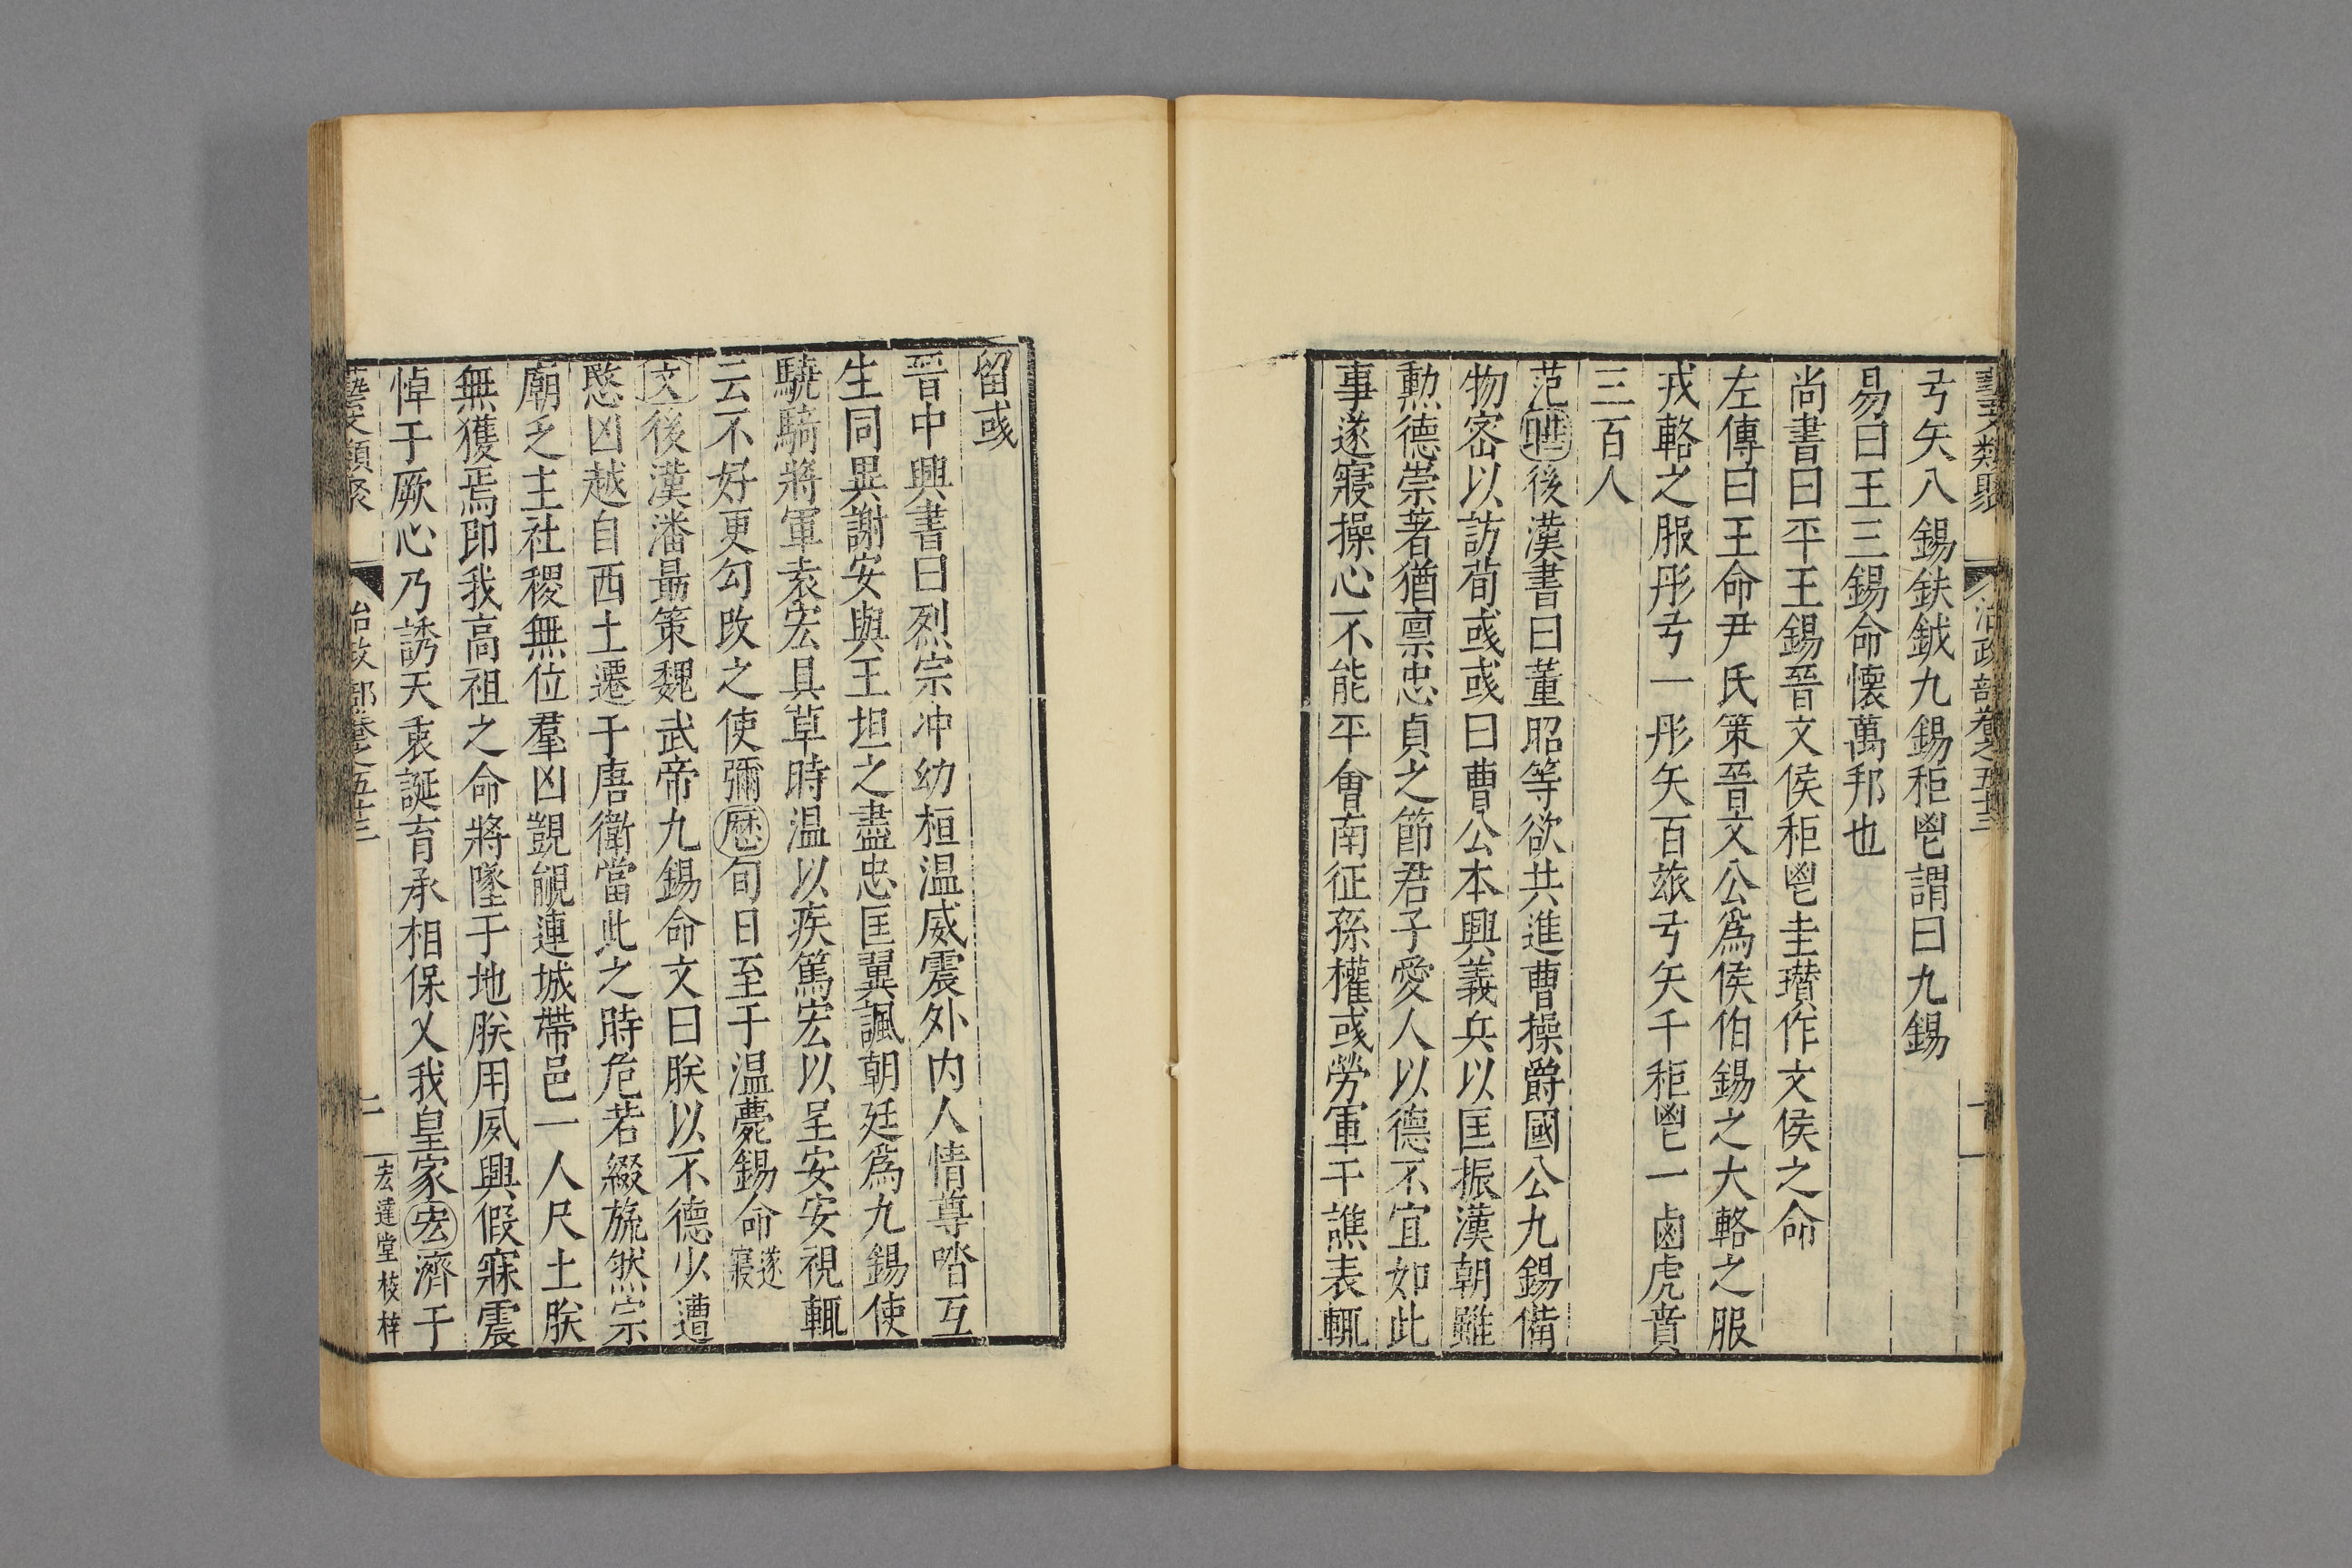 藝文類聚 治政部卷之五十三 十一
弓矢八錫鈇鉞九錫秬鬯謂曰九錫
易曰王三錫命懷萬邦也
尚書曰平王錫晉文侯秬鬯圭瓚作文侯之命
左傳曰王命尹氏策晉文公爲侯伯錫之大輅之服
戎輅之服彤弓一彤矢百玈弓矢千秬鬯一卣虎賁
三百人
范曄後漢書曰董昭等欲共進曹操爵國公九錫備
物密以訪荀彧彧曰曹公本興義兵以匡振漢朝雖
勲德崇著猶稟忠貞之節君子愛人以德不宜如此
事遂寢操心不能平會南征孫權彧勞軍于譙表輒
留彧
晉中興書曰烈宗冲幼桓温威震外内人情尊嗒互
生同異謝安與王坦之盡忠匡翼諷朝廷爲九錫使
驍騎將軍袁宏具草時温以疾篤宏以呈安安視輒
云不好更勾改之使彌歷旬日至于温薨錫命遂寢
文後漢潘勗策魏武帝九錫命文曰朕以不德少遭
愍凶越自西土遷于唐衛當此之時危若綴旒然宗
廟乏主社稷無位羣凶覬覦連城帶邑一人尺土朕
無獲焉即我高祖之命將墜于地朕用夙興假寐震
悼于厥心乃誘天衷誕育丞相保乂我皇家宏濟于
藝文類聚 治政部卷之五十三 十一 宏達堂校梓